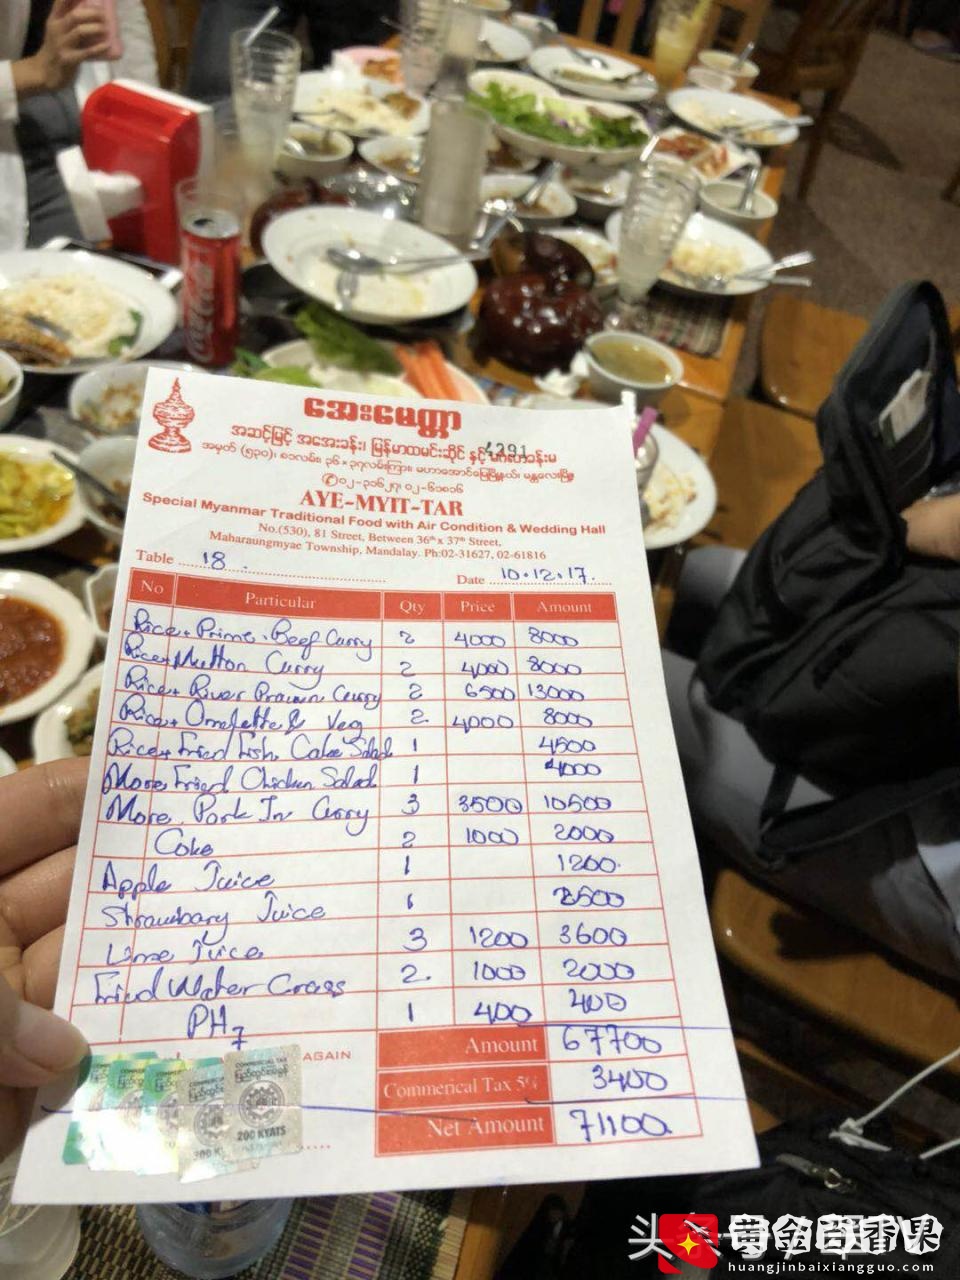 အေးမေတ္တာ
4391
အဆင့်မြင့် အအေးခန်း၊ မြန်မာထမင်းဆိုင် နှင့် မင်္ဂလာခန်းမ
အမှတ် (၅၃၀)၊ ၈၁လမ်း၊ ၃၆ × ၃၇လမ်းကြား၊ မဟာအောင်မြေမြို့နယ်၊ မန္တလေးမြို့
✆၀၂-၃၁၆၂၇၊ ၀၂-၆၁၈၁၆
AYE-MYIT-TAR
Special Myanmar Traditional Food with Air Condition & Wedding Hall
No.(530), 81 Street, Between 36th x 37th Street,
Maharaungmyae Township, Mandalay. Ph:02-31627, 02-61816
Table 18 Date 10.12.17.
No Particular Qty Price Amount
Rice + Prime. Beef Curry 2 4000 8000
Rice + Mutton Curry 2 4000 8000
Rice + River Prawn Curry 2 6500 13000
Rice + Omelette & Veg 2 4000 8000
Rice + Fried Fish Cake Salad 1 4500
More Fried Chicken Salad 1 4000
More Pork In Curry 3 3500 10500
Coke 2 1000 2000
Apple Juice 1 1200
Strawbary Juice 1 2500
Lime Juice 3 1200 3600
Fried Water Crass 2 1000 2000
PH7 1 400 400
AGAIN
Amount 67700
Commerical Tax 5% 3400
Net Amount 71100
COMMERCIAL TAX
200 KYATS
Coca-Cola
头条号
黄金百香果
huangjinbaixiangguo.com